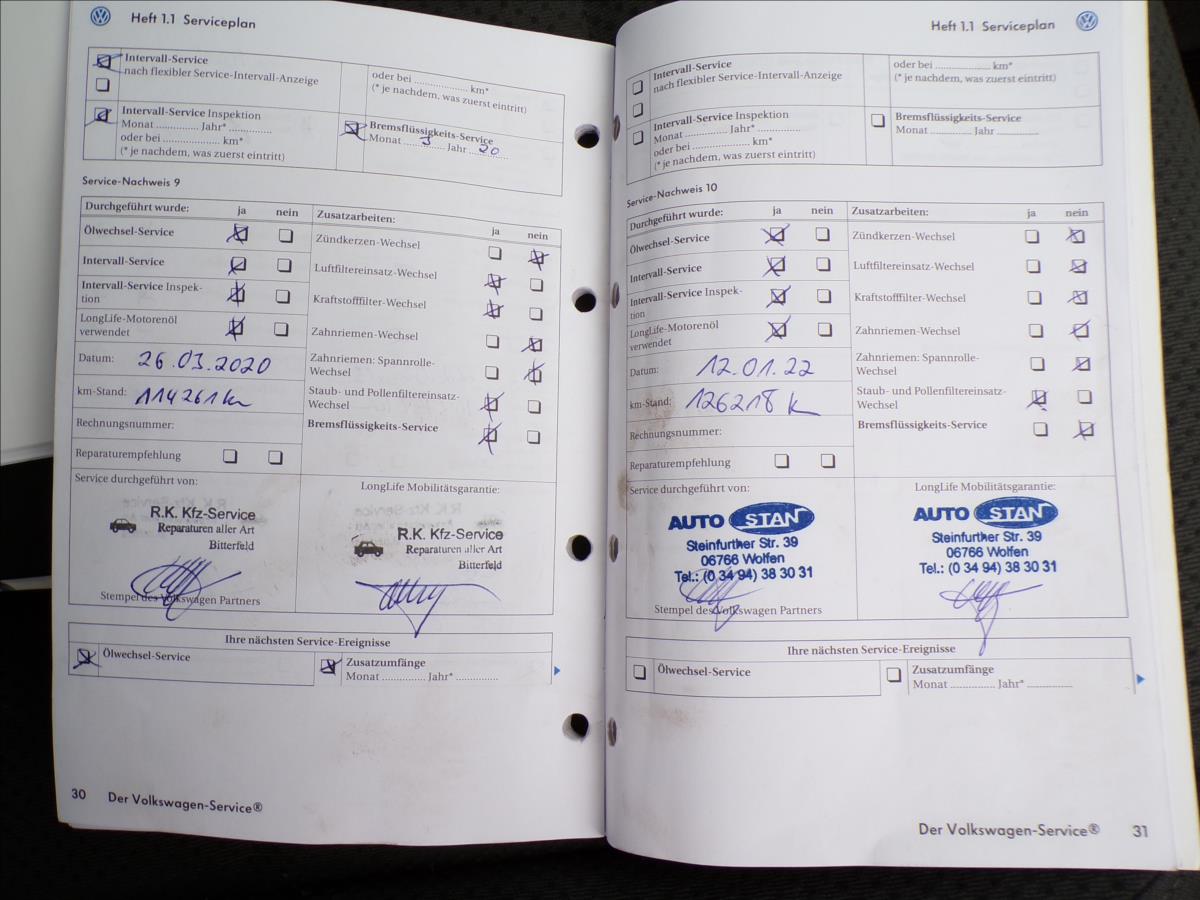 Heft 1.1 Serviceplan
Intervall-Service
nach flexibler Service-Intervall-Anzeige
oder bei .................. km*
(* je nachdem, was zuerst eintritt)
Intervall-Service Inspektion
Monat .............. Jahr* ..............
oder bei .................. km*
(* je nachdem, was zuerst eintritt)
Bremsflüssigkeits-Service
Monat 3 Jahr 20
Service-Nachweis 9
Durchgeführt wurde: ja nein
Zusatzarbeiten: ja nein
Ölwechsel-Service
Zündkerzen-Wechsel
Intervall-Service
Luftfiltereinsatz-Wechsel
Intervall-Service Inspek-
tion
Kraftstofffilter-Wechsel
LongLife-Motorenöl
verwendet
Zahnriemen-Wechsel
Datum: 26.03.2020
Zahnriemen: Spannrolle-
Wechsel
km-Stand: 114261 km
Staub- und Pollenfiltereinsatz-
Wechsel
Rechnungsnummer:
Bremsflüssigkeits-Service
Reparaturempfehlung
Service durchgeführt von:
LongLife Mobilitätsgarantie:
R.K. Kfz-Service
Reparaturen aller Art
Bitterfeld
R.K. Kfz-Service
Reparaturen aller Art
Bitterfeld
Stempel des Volkswagen Partners
Ihre nächsten Service-Ereignisse
Ölwechsel-Service
Zusatzumfänge
Monat .............. Jahr* ..............
30 Der Volkswagen-Service®
Heft 1.1 Serviceplan
Intervall-Service
nach flexibler Service-Intervall-Anzeige
oder bei .................. km*
(* je nachdem, was zuerst eintritt)
Intervall-Service Inspektion
Monat .............. Jahr* ..............
oder bei .................. km*
(* je nachdem, was zuerst eintritt)
Bremsflüssigkeits-Service
Monat .............. Jahr ..............
Service-Nachweis 10
Durchgeführt wurde: ja nein
Zusatzarbeiten: ja nein
Ölwechsel-Service
Zündkerzen-Wechsel
Intervall-Service
Luftfiltereinsatz-Wechsel
Intervall-Service Inspek-
tion
Kraftstofffilter-Wechsel
LongLife-Motorenöl
verwendet
Zahnriemen-Wechsel
Datum: 12.01.22
Zahnriemen: Spannrolle-
Wechsel
km-Stand: 126218 k
Staub- und Pollenfiltereinsatz-
Wechsel
Rechnungsnummer:
Bremsflüssigkeits-Service
Reparaturempfehlung
Service durchgeführt von:
LongLife Mobilitätsgarantie:
AUTO STAN
Steinfurther Str. 39
06766 Wolfen
Tel.: (0 34 94) 38 30 31
AUTO STAN
Steinfurther Str. 39
06766 Wolfen
Tel.: (0 34 94) 38 30 31
Stempel des Volkswagen Partners
Ihre nächsten Service-Ereignisse
Ölwechsel-Service
Zusatzumfänge
Monat .............. Jahr* ..............
Der Volkswagen-Service® 31